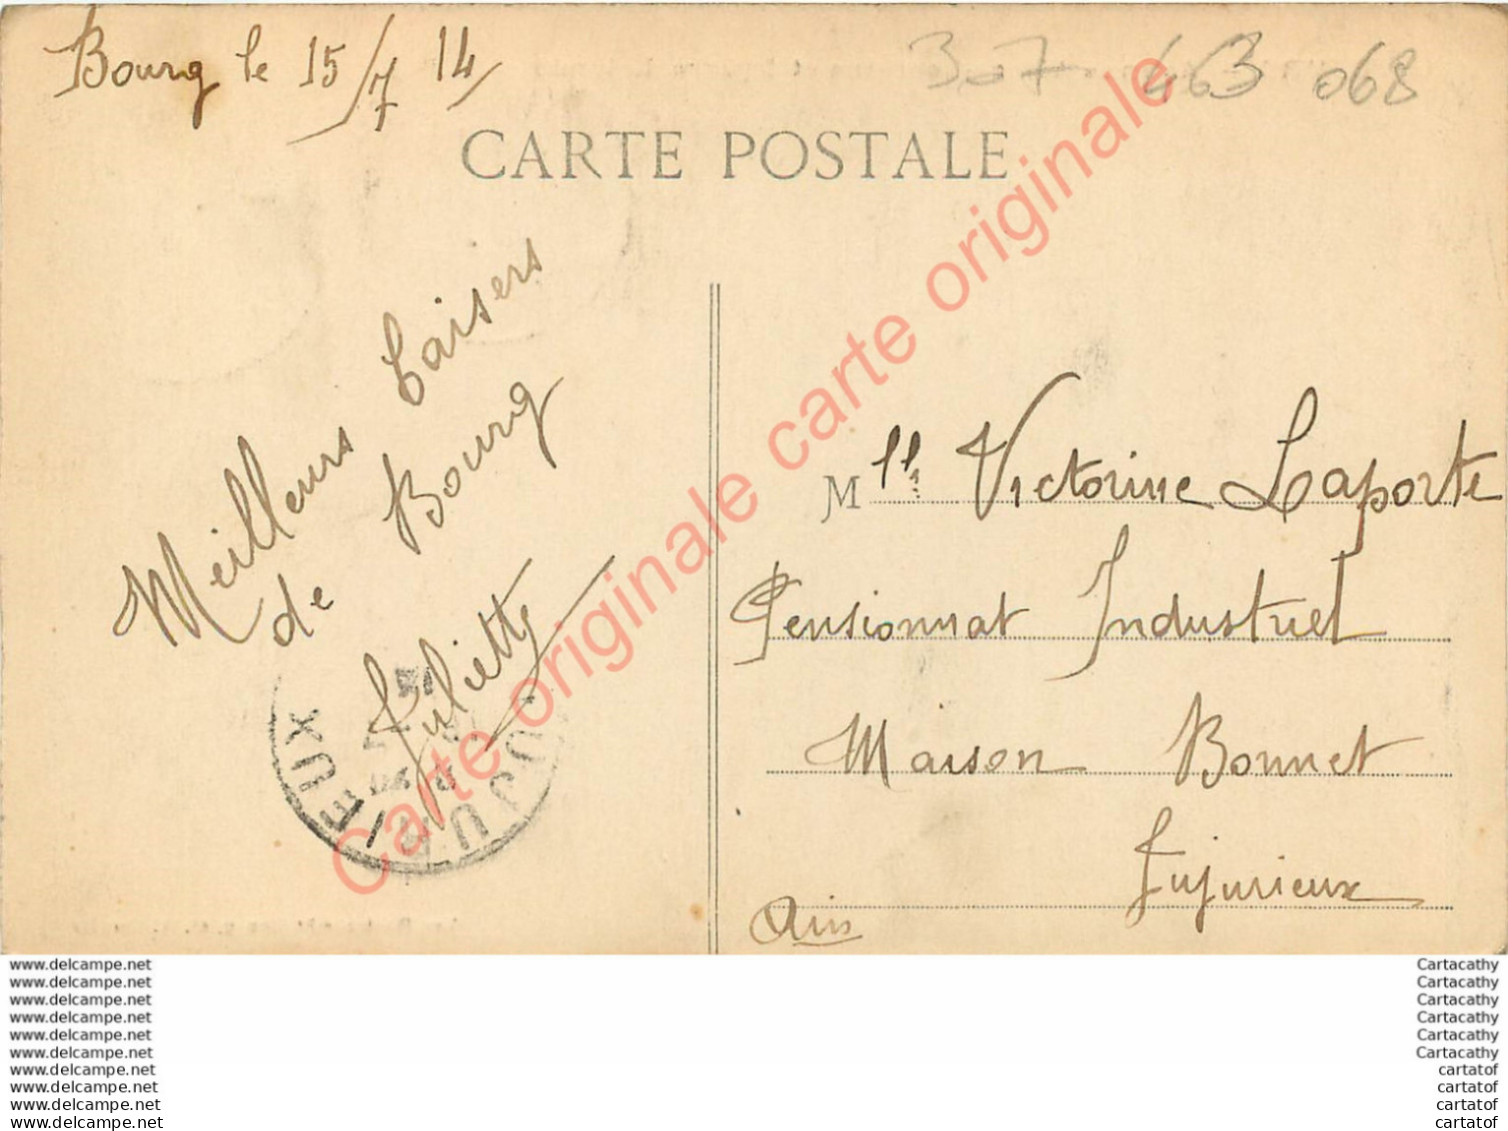 Bourg le 15/7 14/
307 463 068
CARTE POSTALE
Meilleurs baisers
de Bourg
Juliette
JUJURIEUX
Mlle Victorine Laporte
Pensionnat Industriel
Maison Bonnet
Jujurieux
Ain
Carte originale carte originale carte originale
www.delcampe.net
www.delcampe.net
www.delcampe.net
www.delcampe.net
www.delcampe.net
www.delcampe.net
www.delcampe.net
www.delcampe.net
www.delcampe.net
www.delcampe.net
Cartacathy
Cartacathy
Cartacathy
Cartacathy
Cartacathy
Cartacathy
cartatof
cartatof
cartatof
cartatof